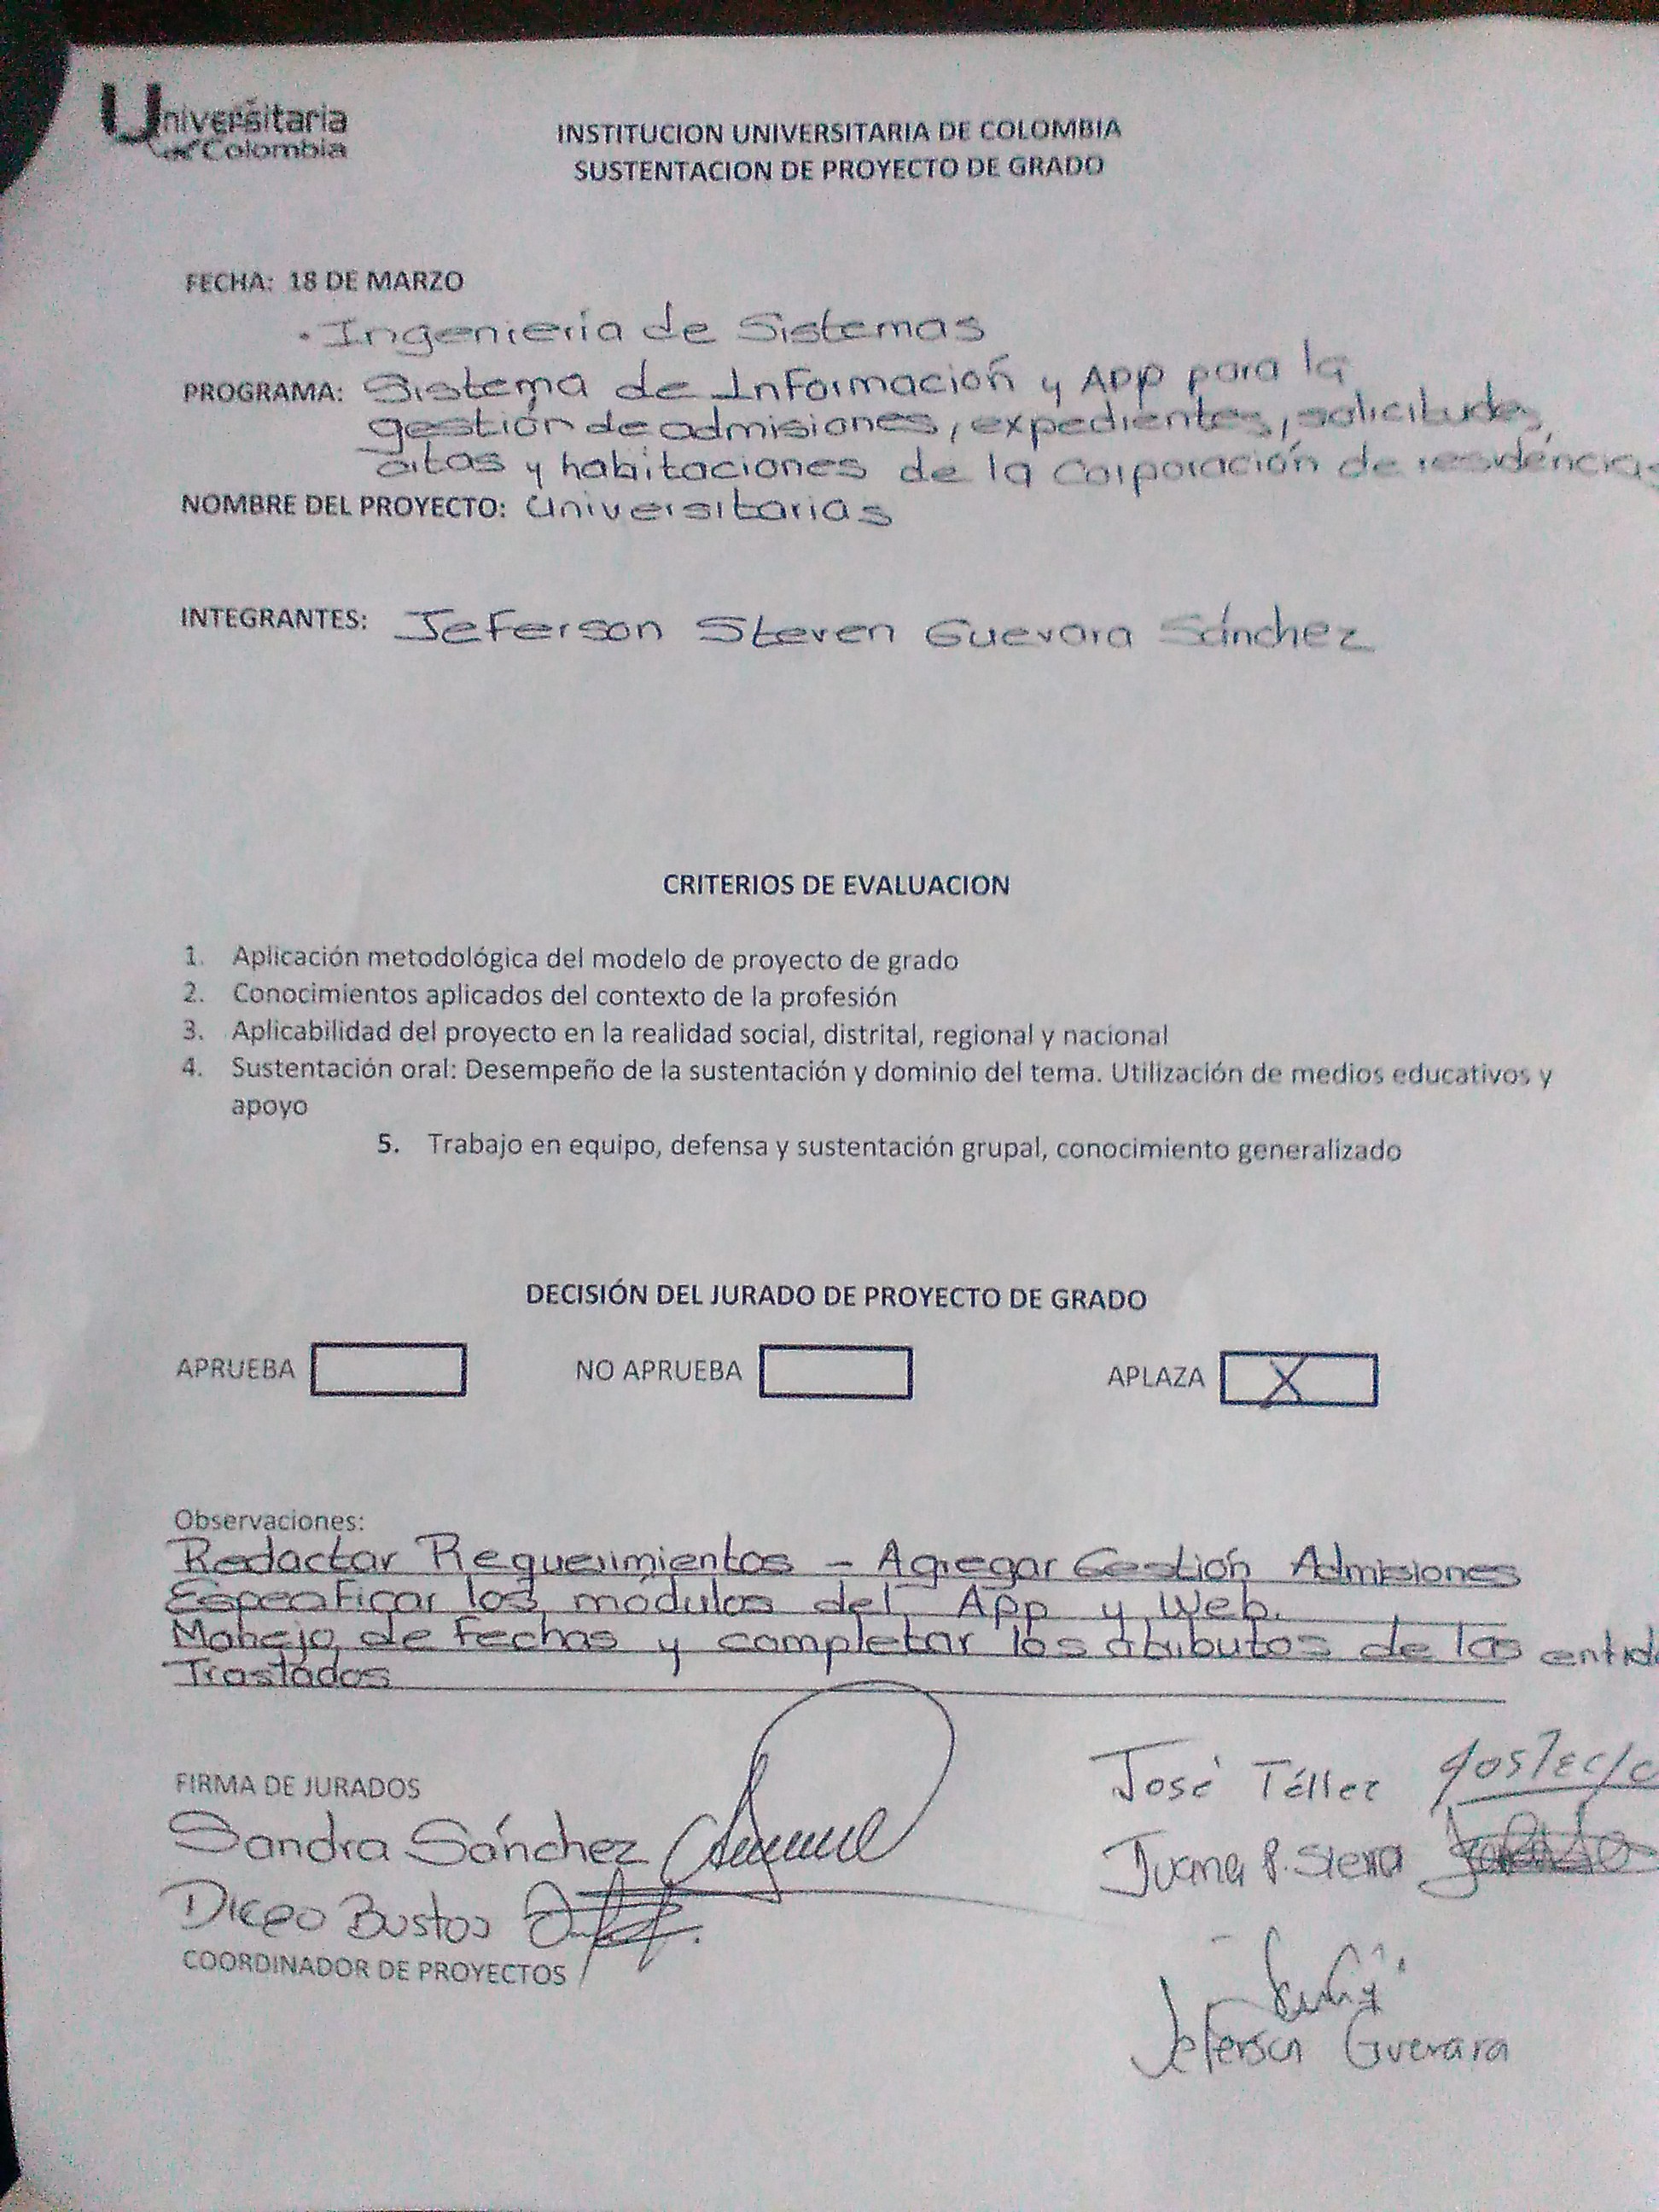 Universitaria
de Colombia
INSTITUCION UNIVERSITARIA DE COLOMBIA
SUSTENTACION DE PROYECTO DE GRADO
FECHA: 18 DE MARZO
· Ingeniería de Sistemas
PROGRAMA: Sistema de Información y App para la
gestión de admisiones, expedientes, solicitudes,
citas y habitaciones de la Corporación de residencias
NOMBRE DEL PROYECTO: Universitarias
INTEGRANTES: Jeferson Steven Guevara Sánchez
CRITERIOS DE EVALUACION
1. Aplicación metodológica del modelo de proyecto de grado
2. Conocimientos aplicados del contexto de la profesión
3. Aplicabilidad del proyecto en la realidad social, distrital, regional y nacional
4. Sustentación oral: Desempeño de la sustentación y dominio del tema. Utilización de medios educativos y
apoyo
5. Trabajo en equipo, defensa y sustentación grupal, conocimiento generalizado
DECISIÓN DEL JURADO DE PROYECTO DE GRADO
APRUEBA NO APRUEBA APLAZA X
Observaciones:
Redactar Requerimientos - Agregar Gestión Admisiones
Especificar los módulos del App y Web.
Manejo de fechas y completar los atributos de las entid
Traslados
FIRMA DE JURADOS
José Téllez
Sandra Sánchez
Juana P. Sierra
Diego Bustos
COORDINADOR DE PROYECTOS
Jeferson Guevara